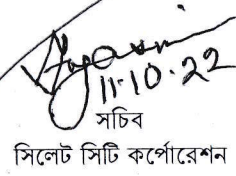 11-10-22
সচিব
সিলেট সিটি কর্পোরেশন